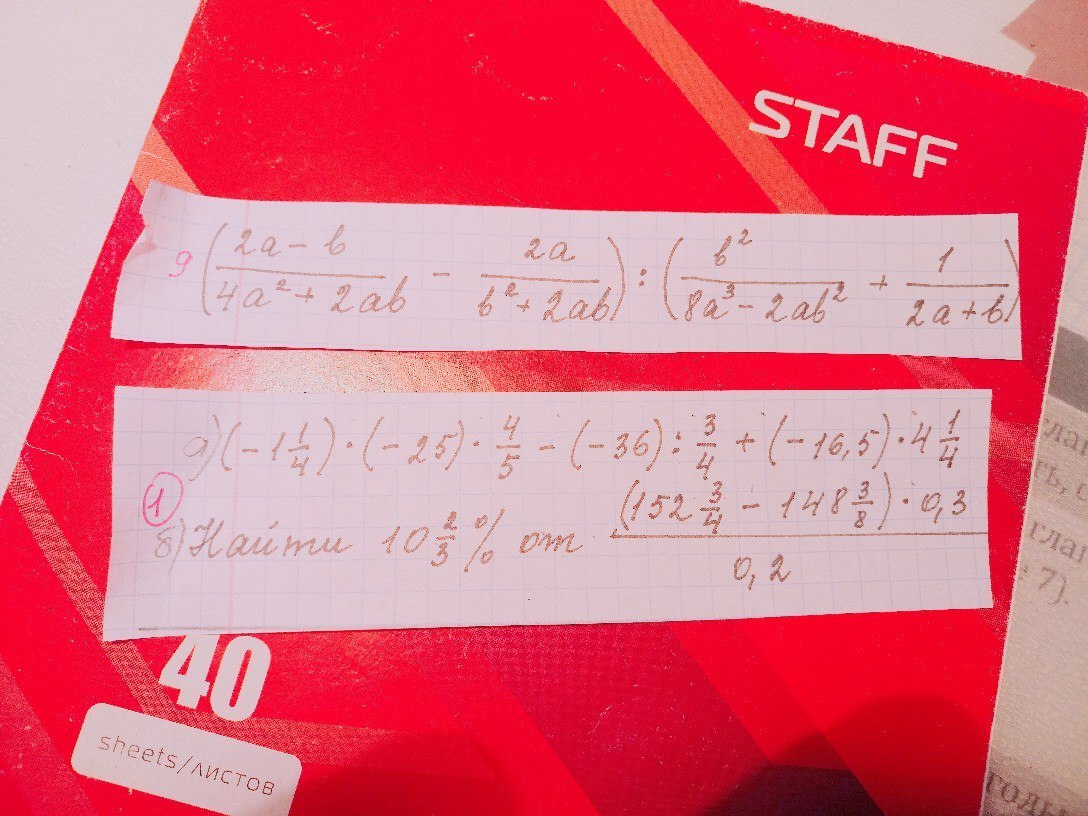 STAFF
9 ((2a - b)/(4a² + 2ab) - 2a/(b² + 2ab)) : (b²/(8a³ - 2ab²) + 1/(2a + b))
а) (-1 1/4) · (-25) · 4/5 - (-36) : 3/4 + (-16,5) · 4 1/4
1
б) Найти 10 2/3 % от ((152 3/4 - 148 3/8) · 0,3)/0,2
40
sheets/листов
7).